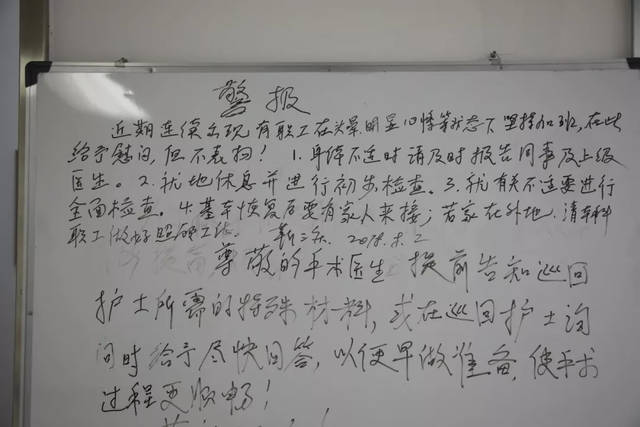 警报
近期连续出现有职工在头晕明显心悸等状态下坚持加班,在此
给予慰问,但不表扬! 1.身体不适时请及时报告同事及上级
医生。2.就地休息并进行初步检查。3.就有关不适要进行
全面检查。4.基本恢复后要有家人来接;若家在外地,请本科
职工做好照顾工作。 2018.
尊敬的手术医生 提前告知巡回
护士所需的特殊材料,或在巡回护士询
问时给予尽快回答,以便早做准备,使手术
过程更顺畅!